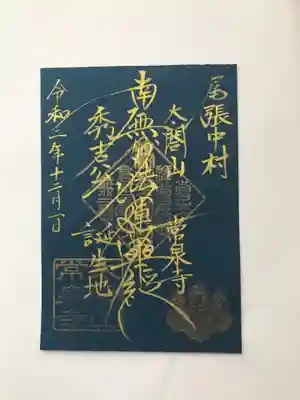 尾張中村
太閤山 常泉寺
南無妙法蓮華経
秀吉公 誕生地
令和二年十二月一日